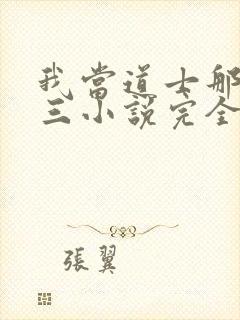 我當道士
三小說完全
張翼